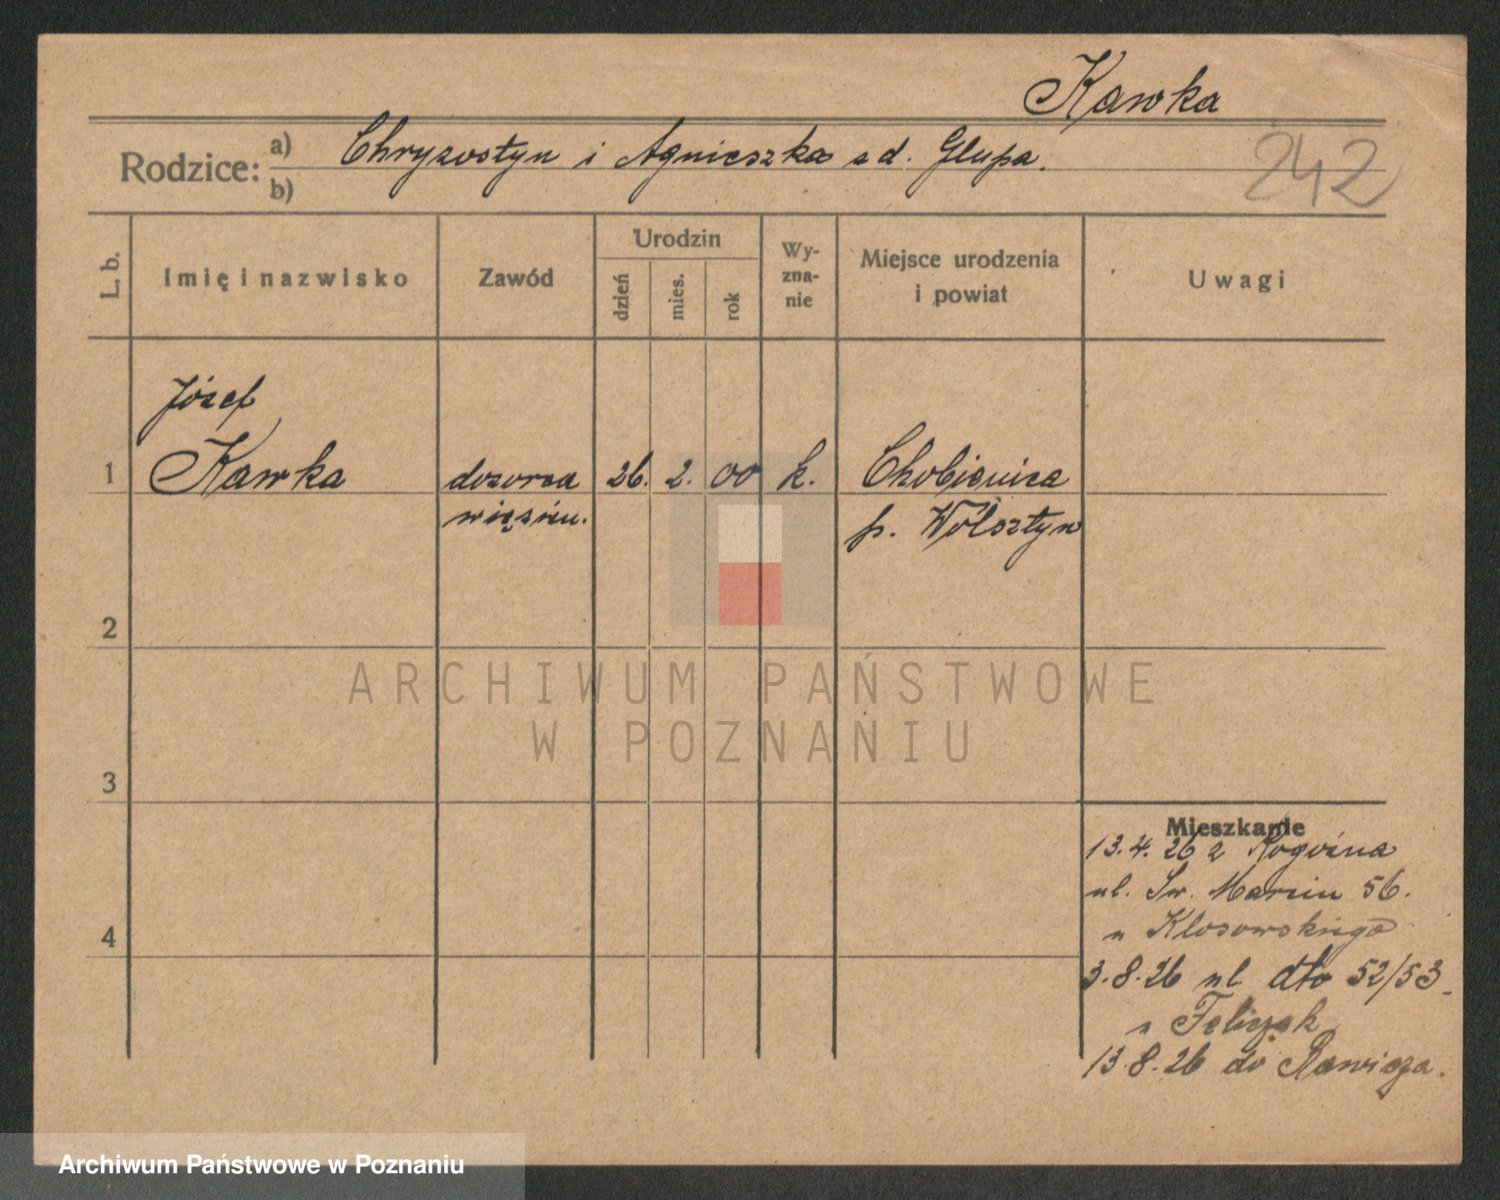 Kawka
Rodzice: a) Chryzostyn i Agnieszka z d. Glupa.
b)
242
L. b.
Imię i nazwisko
Zawód
Urodzin
dzień
mies.
rok
Wy-
zna-
nie
Miejsce urodzenia
i powiat
Uwagi
Józef
1 Kawka dozorca 26. 2. 00 k. Chobienica
więzien. p. Wolsztyn
2
3
4
Mieszkanie
13.4.26 z Rogoźna
ul. Św. Marcin 56.
u Klosowskiego
3.8.26 ul. dto 52/53
u Felczak
13.8.26 do Rawicza.
ARCHIWUM PAŃSTWOWE
W POZNANIU
Archiwum Państwowe w Poznaniu